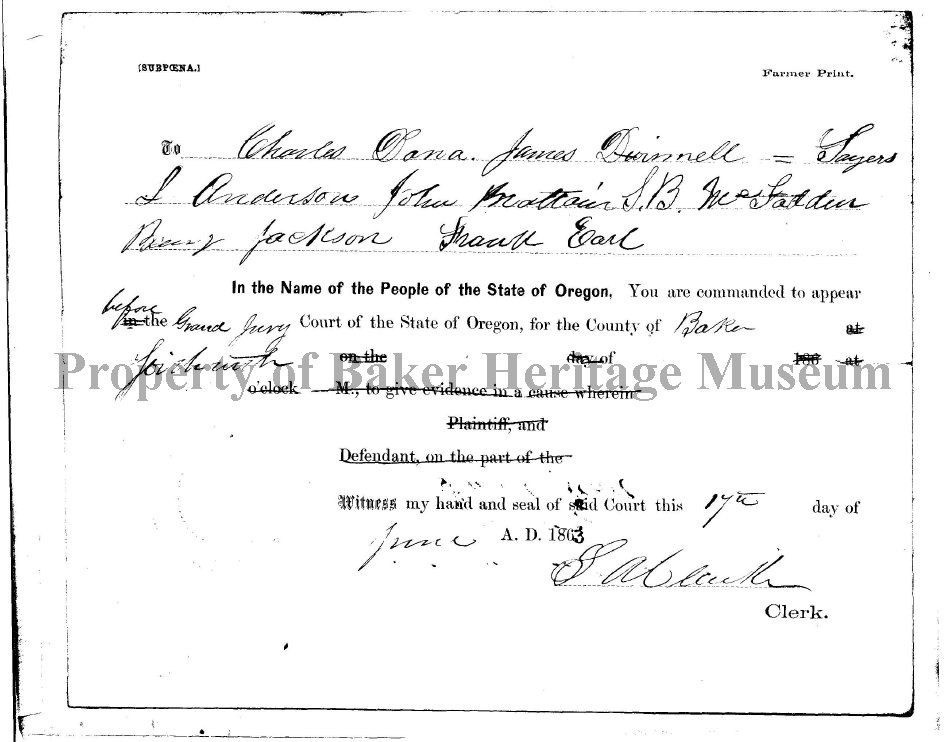 [SUBPŒNA.]
Farmer Print.
To Charles Dana. James Dwinnell = Sayers
I Anderson John Mattain S.B. McFadden
Jackson Frank Earl
In the Name of the People of the State of Oregon, You are commanded to appear
before
in the Grand Jury Court of the State of Oregon, for the County of Baker at
forthwith on the day of 186 at
Property of Baker Heritage Museum
o'clock M., to give evidence in a cause wherein
Plaintiff, and
Defendant, on the part of the
Witness my hand and seal of said Court this 17th day of
June A. D. 1863
Clerk.